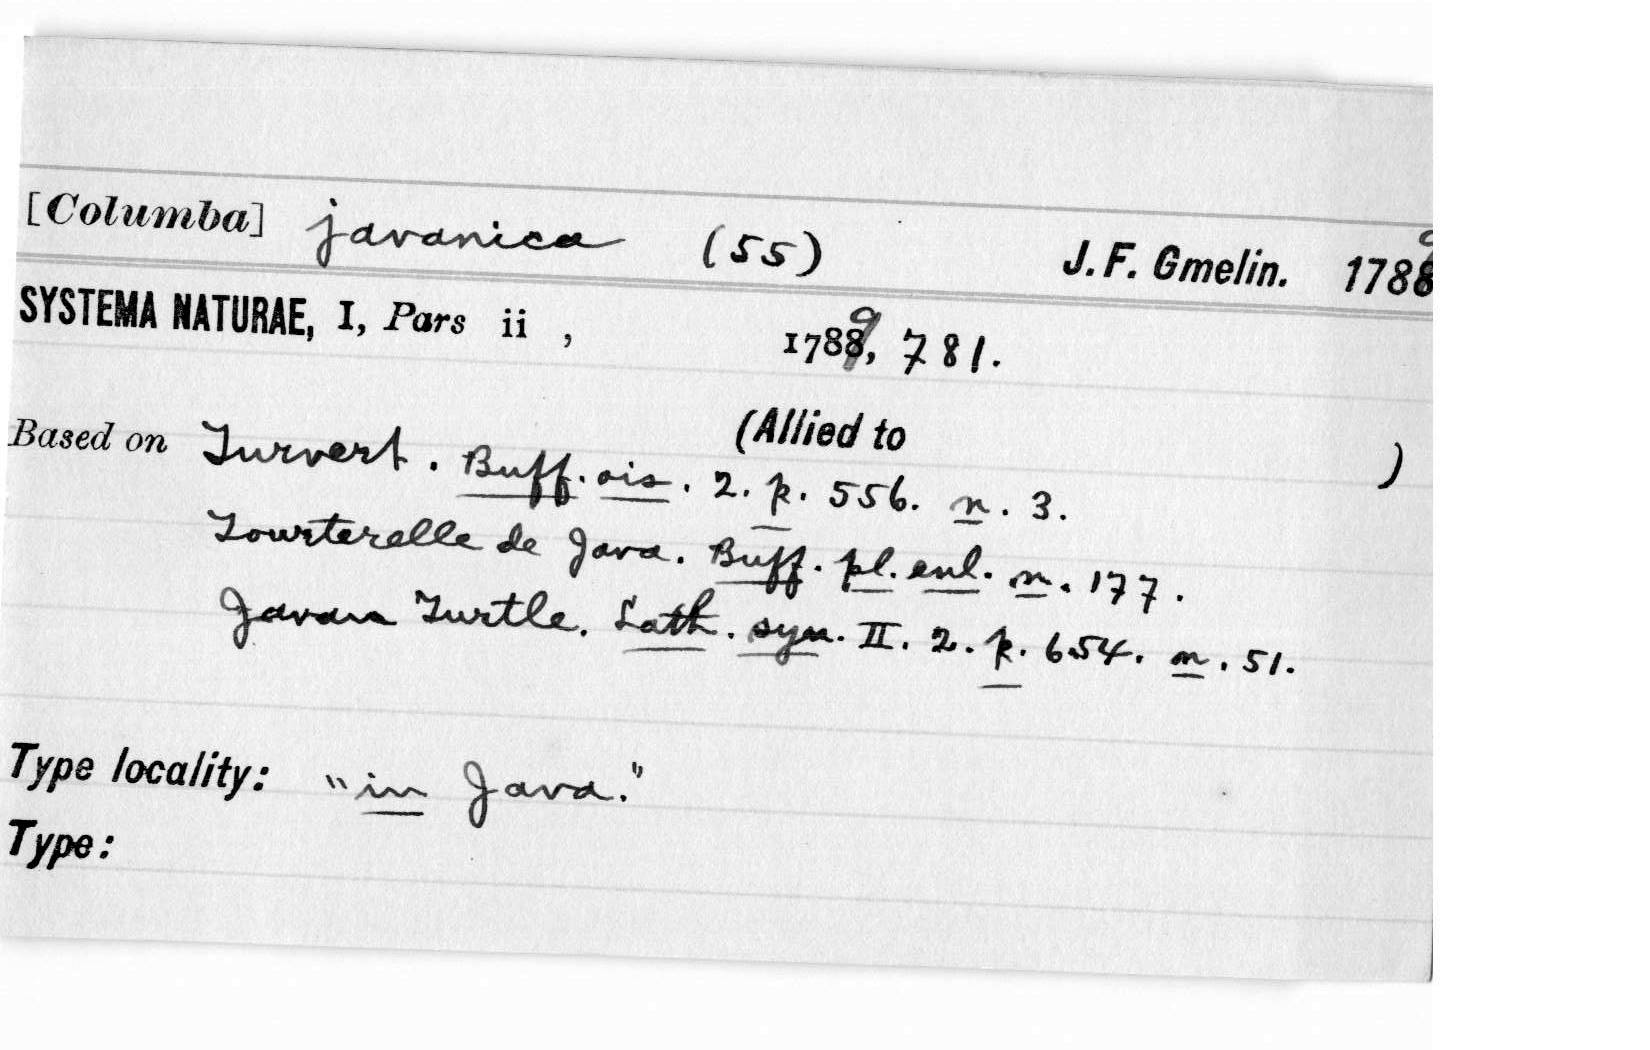 [Columba] javanica (55) J. F. Gmelin. 1789
SYSTEMA NATURAE, I, Pars ii , 1789, 781.
(Allied to )
Based on Turvert. Buff. ois. 2. p. 556. n. 3.
Tourterelle de Java. Buff. pl. enl. n. 177.
Javan Turtle. Lath. syn. II. 2. p. 654. n. 51.
Type locality: "in Java."
Type: